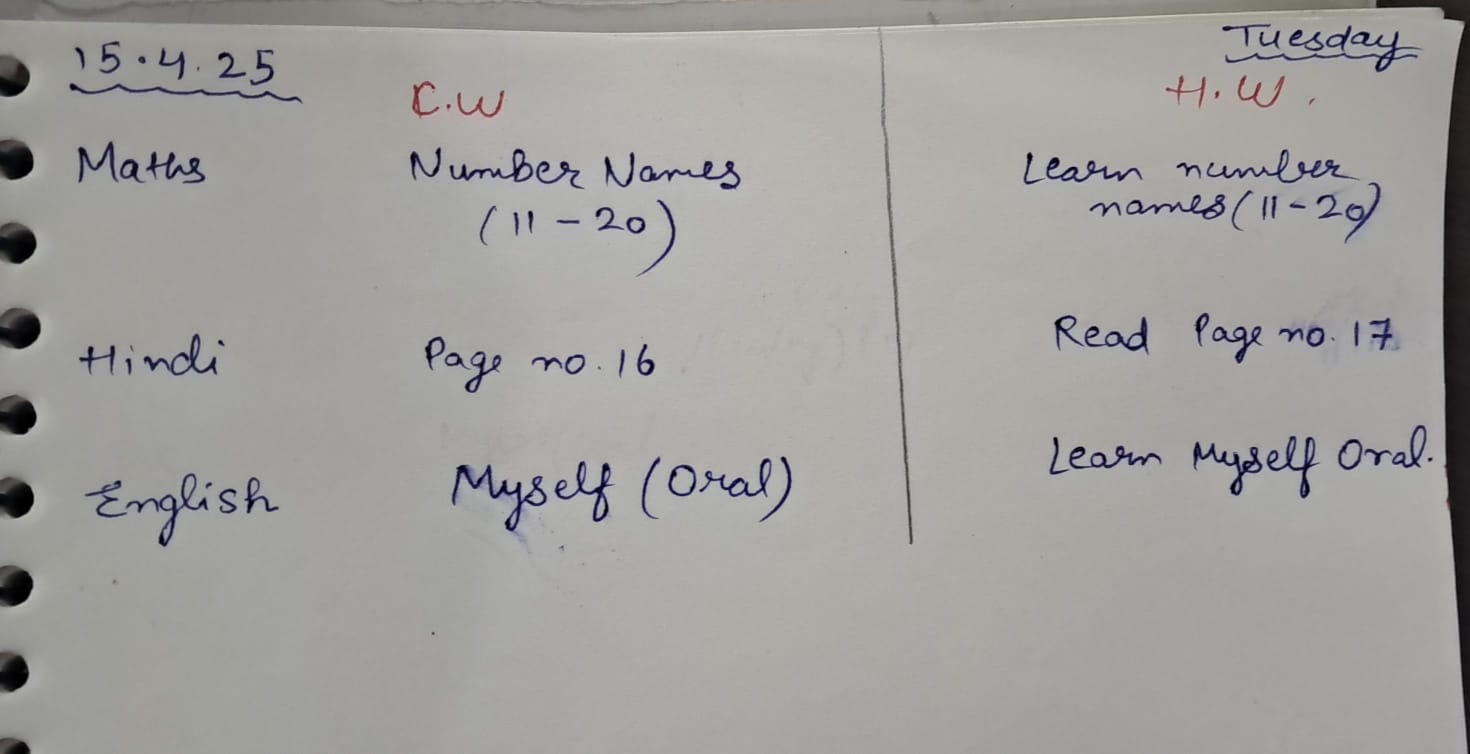 15.4.25 Tuesday
C.W H.W.
Maths Number Names Learn number
(11-20) names(11-20)
Hindi Page no. 16 Read Page no. 17
English Myself (Oral) Learn Myself Oral.